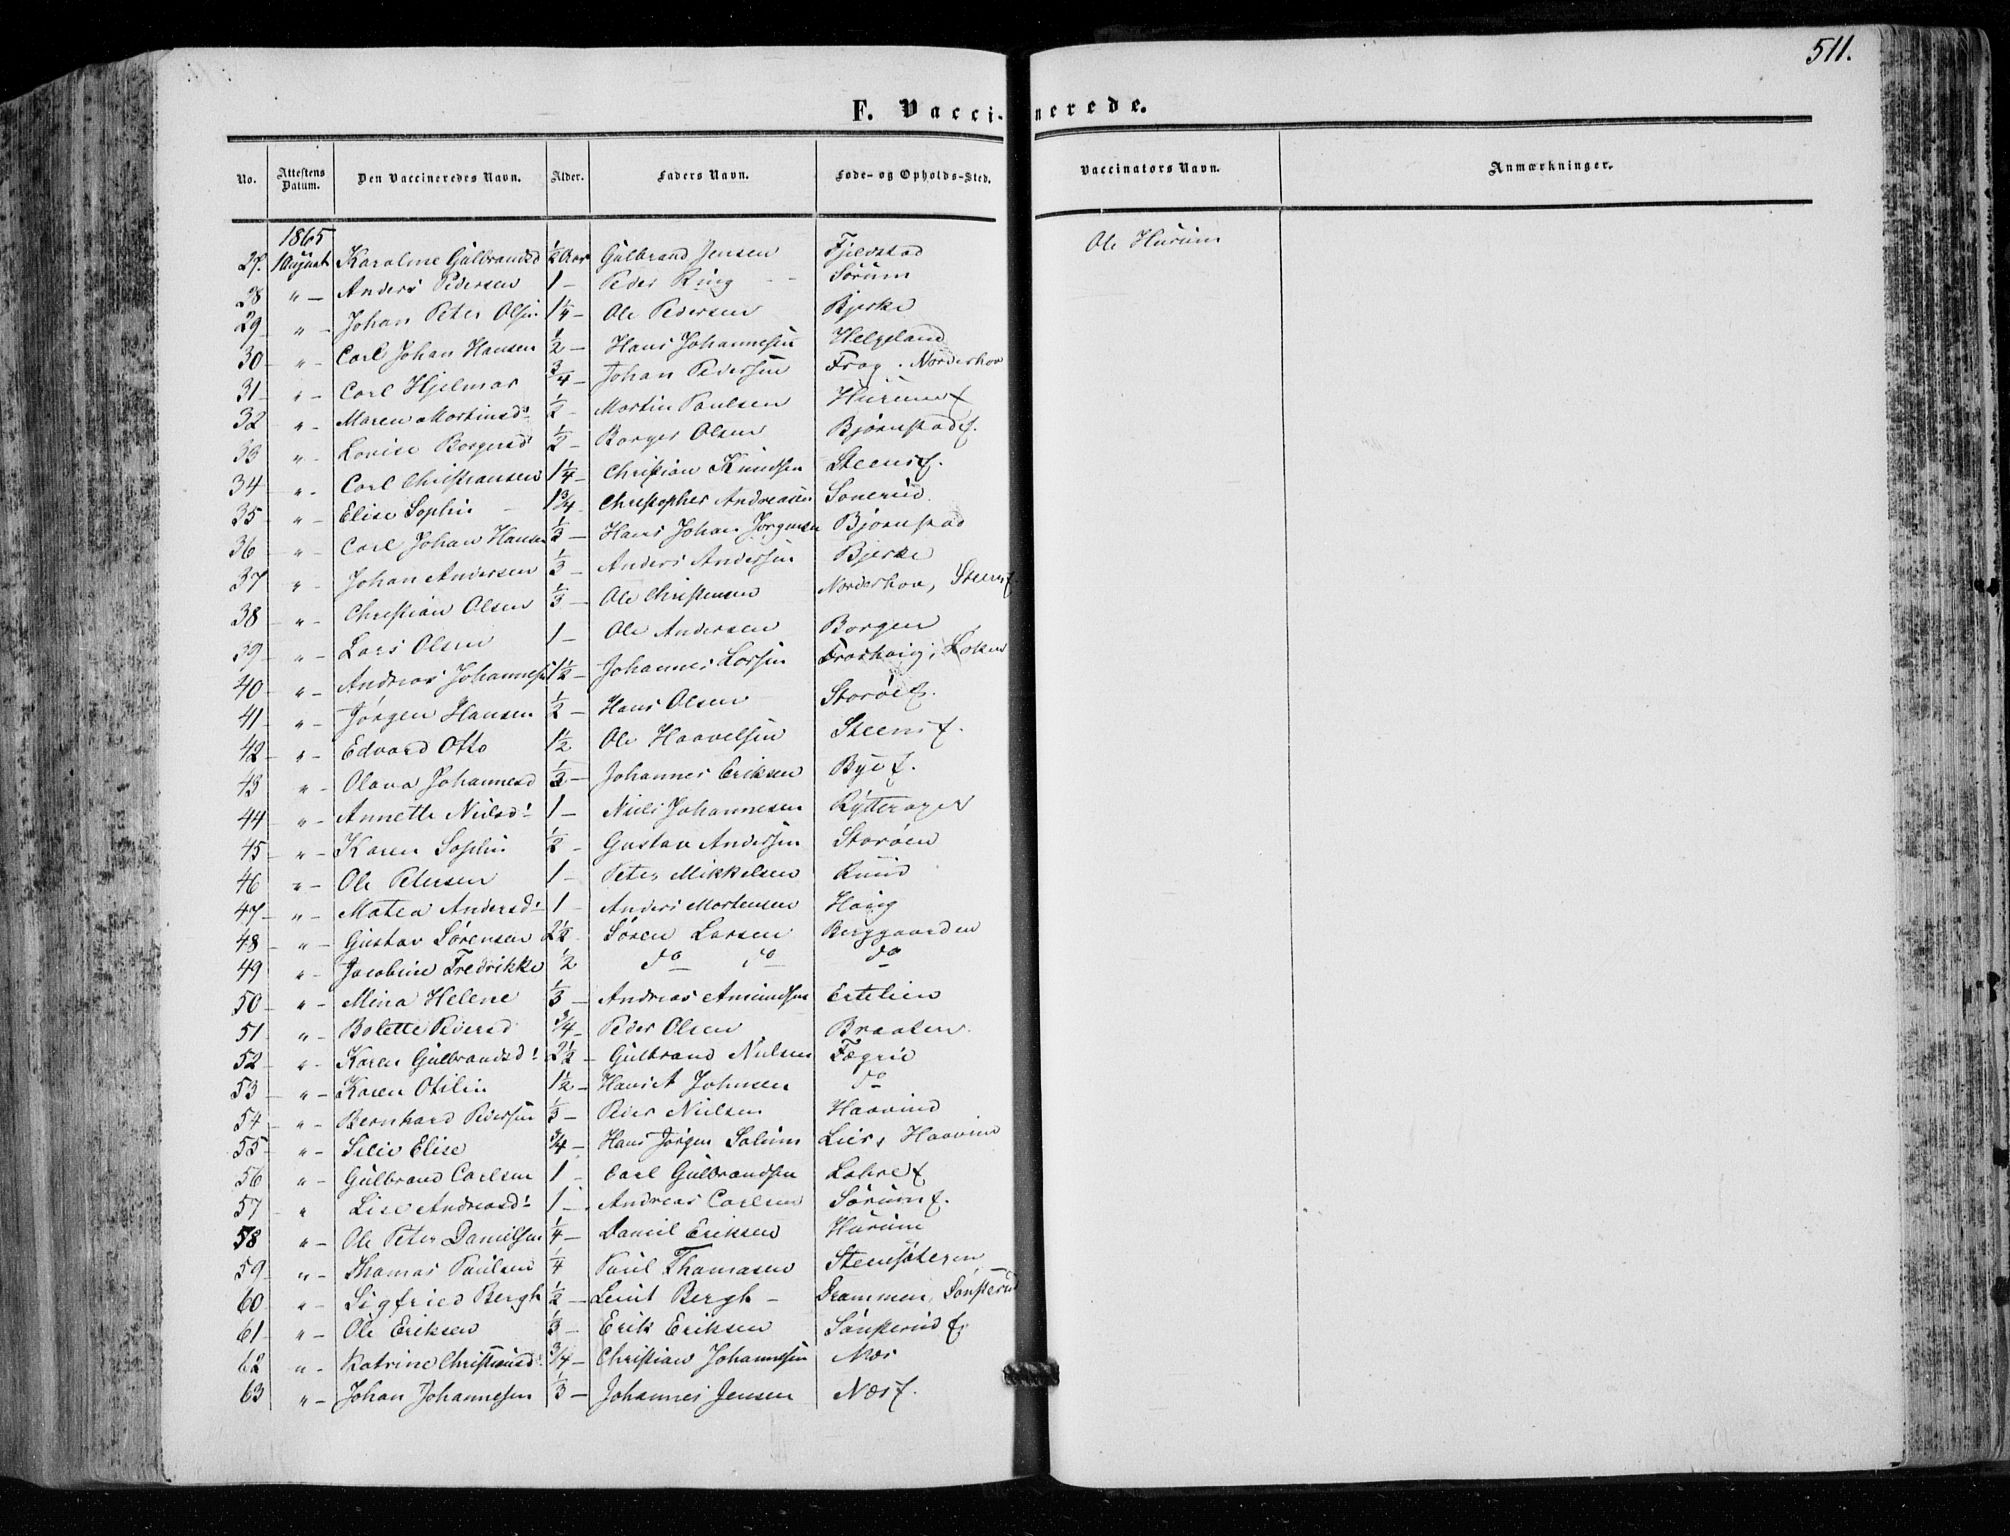 511.
F. Vaccinerede.
No. Attestens Datum. Den Vaccineredes Navn. Alder. Faders Navn. Føde- og Opholds-Sted. Vaccinators Navn. Anmærkninger.
1865
27. 1 August Karoline Gulbrandsd ½ Aar Gulbrand Jensen Fjeldstad Ole Hurum
28 " – Anders Pedersen 1 – Peder Ring Sørum
29 " – Johan Peter Olsen 1¼ – Ole Pedersen Bjerke
30 " – Carl Johan Hansen ½ – Hans Johannesen Helgeland
31 " – Carl Hjelmar ¾ – Johan Pedersen Frog. Norderhov
32 " – Maren Martinsd: ½ – Martin Paulsen Hurum f
33 " – Lovise Borgersd ½ – Borger Olsen Bjørnstad f.
34 " – Carl Christiansen 1¼ – Christian Knudsen Steens f.
35 " – Elise Sophie – 1¾ Christopher Andreasen Sonerud.
36 " – Carl Johan Hansen ⅓ – Hans Johan Jørgensen Bjørnstad
37 " – Johan Andersen ⅓ – Anders Andersen Bjerke
38 " – Christian Olsen ⅓ – Ole Christensen Norderhov, Steens f
39 " – Lars Olsen 1 – Ole Andersen Borgen
40 " – Andreas Johannesen 1½ – Johannes Larsen Løken
41 " – Jørgen Hansen ½ – Hans Olsen Storøe f.
42 " – Edvard Otto 1½ Ole Haavelsen Steens f.
43 " – Olava Johannesd ⅓ – Johannes Eriksen Bye f.
44 " – Annette Nielsd: 1 – Niels Johannesen Rytterager
45 " – Karen Sophie ½ – Gustav Andersen Storøen
46 " – Ole Petersen 1 – Peter Mikkelsen Rud
47 " – Matea Andersd: 1 – Anders Mortensen Haug
48 " – Gustav Sørensen 2½ Søren Larsen Berggaarden
49 " – Jacobine Fredrikke ½ do do do
50 " – Mina Helene ⅓ – Andreas Amundsen Ertelien
51 " – Bolette Pedersd ¾ – Peder Olsen Braaten.
52 " – Karen Gulbrandsd: 2½ – Gulbrand Nielsen Fægrie
53 " – Karen Otilie 1½ – Johnsen do
54 " – Bernhard Pedersen ⅓ – Peder Nielsen Haavind
55 " – Silie Elise ¾ – Hans Jørgen Solum Lier, Haavind
56 " – Gulbrand Carlsen 1 – Carl Gulbrandsen Lohre f
57 " Lise Andreasd: 1 – Andreas Carlsen Sørum f.
58 " – Ole Peter Danielsen ¼ – Daniel Eriksen Hurum
59 " – Thomas Paulsen ¼ Paul Thomasen Steensæteren
60 " – Sigfried Bergh ½ – Leut Bergh – Drammen, Sønsterud
61 " – Ole Eriksen ⅓ – Erik Eriksen Sønsterud f.
62 " – Katrine Christiansd: ¾ – Christian Johannesen Næs
63 " – Johan Johannesen ⅓ – Johannes Jensen Næs f.